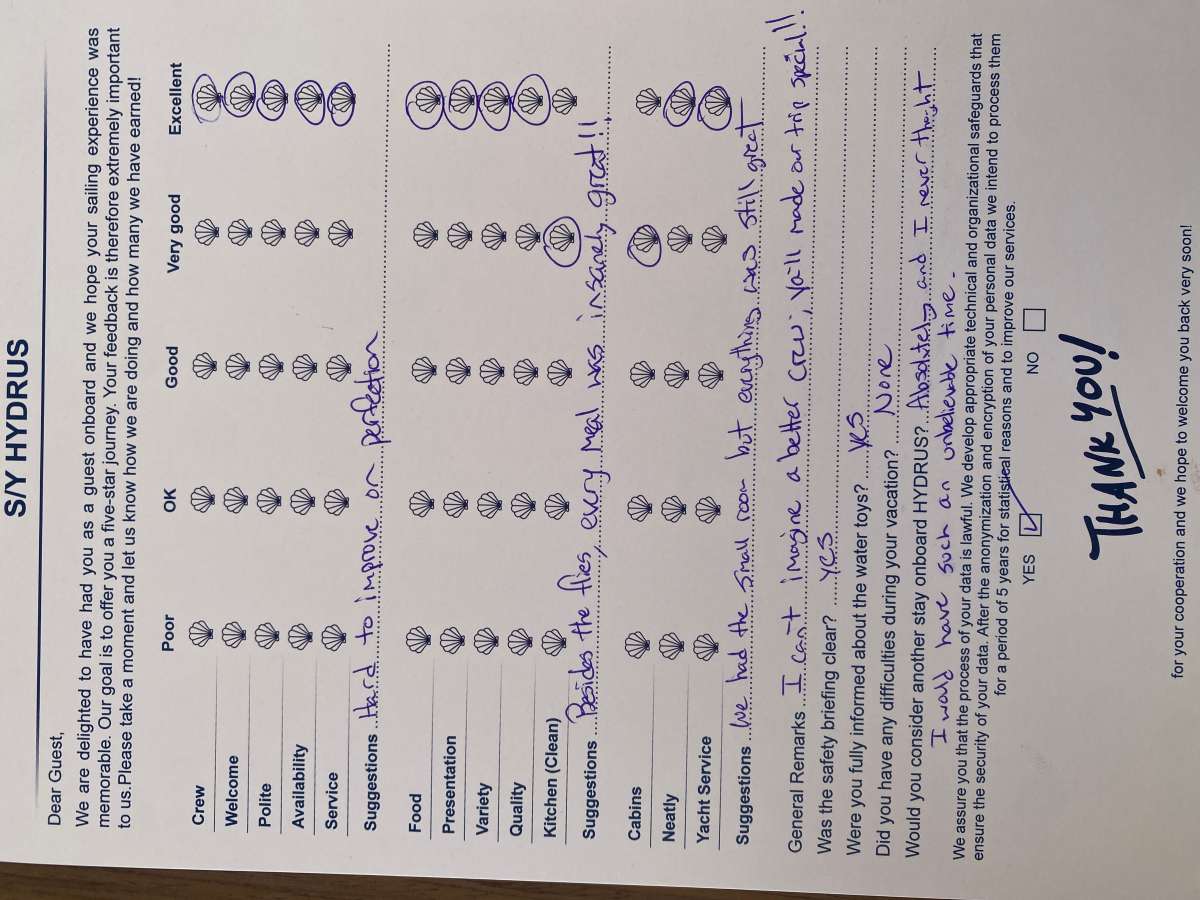 S/Y HYDRUS
Dear Guest,
We are delighted to have had you as a guest onboard and we hope your sailing experience was
memorable. Our goal is to offer you a five-star journey. Your feedback is therefore extremely important
to us.Please take a moment and let us know how we are doing and how many we have earned!
Poor OK Good Very good Excellent
Crew
Welcome
Polite
Availability
Service
Suggestions Hard to improve on perfection
Food
Presentation
Variety
Quality
Kitchen (Clean)
Suggestions Besides the flies, every meal was insanely great!!
Cabins
Neatly
Yacht Service
Suggestions We had the small room but everything was still great
General Remarks I can't imagine a better crew; ya'll made our trip special!!!
Was the safety briefing clear? yes
Were you fully informed about the water toys? yes
Did you have any difficulties during your vacation? None
Would you consider another stay onboard HYDRUS? Absolutely and I never thought
I would have such an unbelievable time.
We assure you that the process of your data is lawful. We develop appropriate technical and organizational safeguards that
ensure the security of your data. After the anonymization and encryption of your personal data we intend to process them
for a period of 5 years for statistical reasons and to improve our services.
YES NO
THANK YOU!
for your cooperation and we hope to welcome you back very soon!